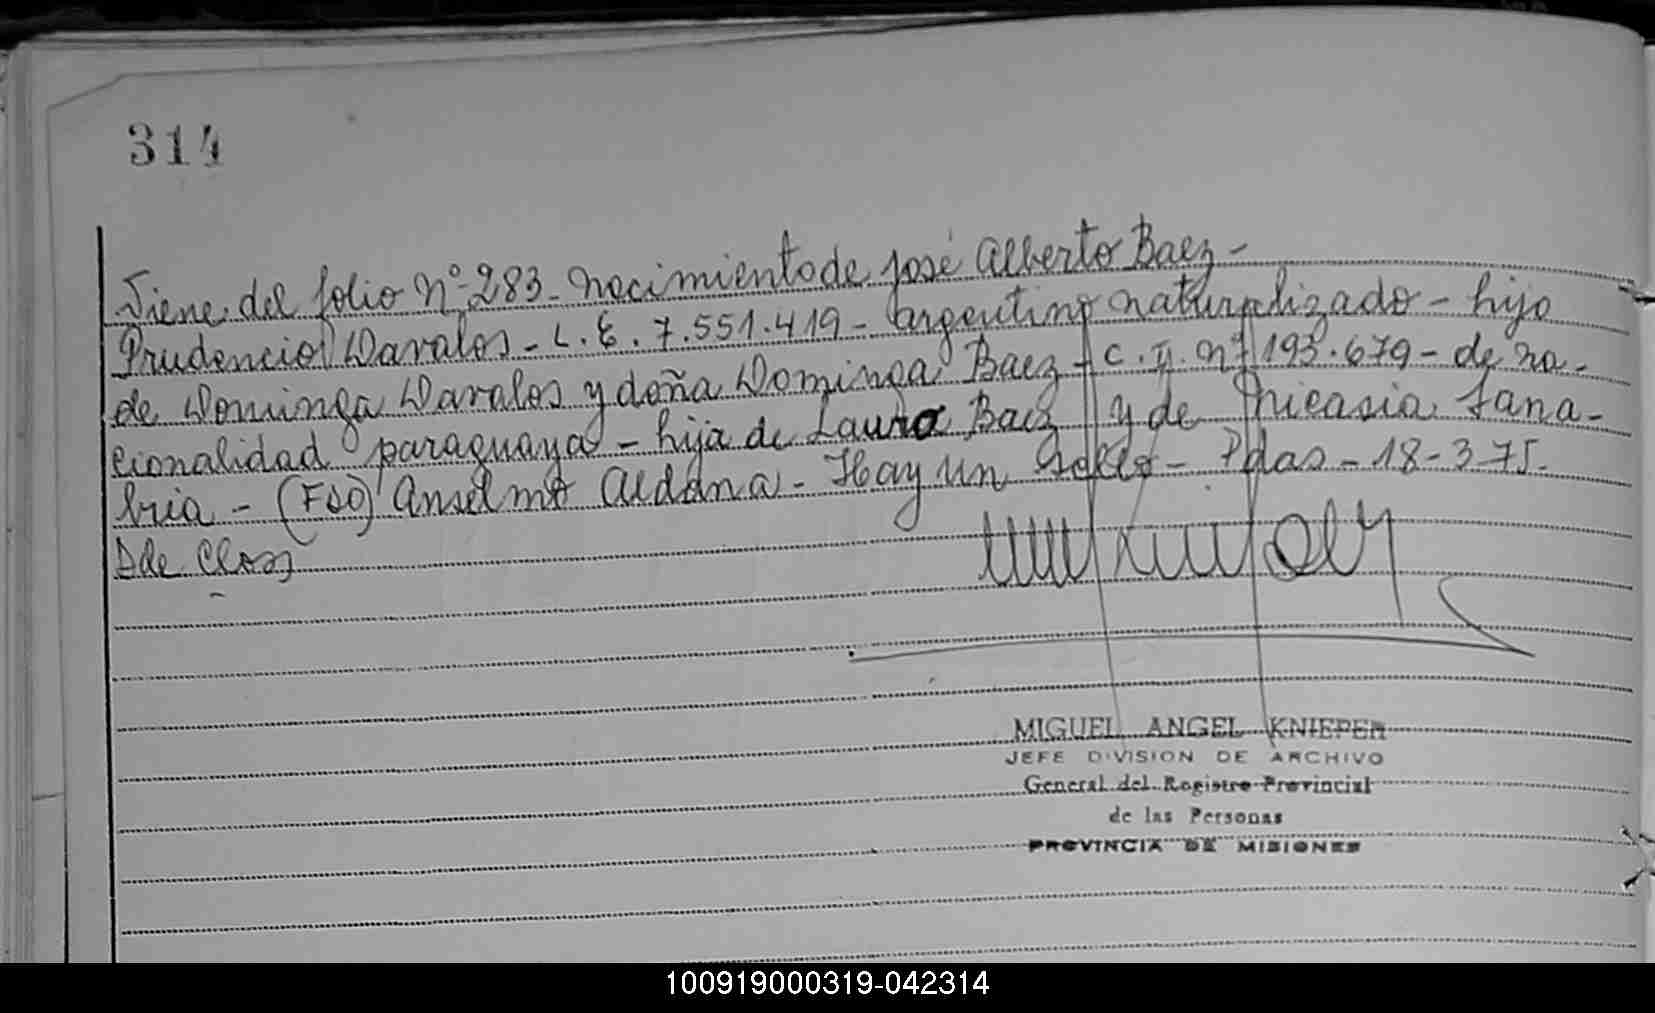 314
Viene del folio Nº 283 - Nacimiento de José Alberto Baez -
Prudencio Davalos - L. E. 7.551.419 - argentino naturalizado - hijo
de Dominga Davalos y doña Dominga Baez - C. I. Nº 193.679 - de na-
cionalidad paraguaya - hija de Laura Baez y de Nicasia Sana-
bria - (Fdo) Anselmo Aldana - Hay un Sello - Pdas - 18-3-75 -
MIGUEL ANGEL KNIEPER
JEFE DIVISION DE ARCHIVO
General del Registro Provincial
de las Personas
PROVINCIA DE MISIONES
100919000319-042314